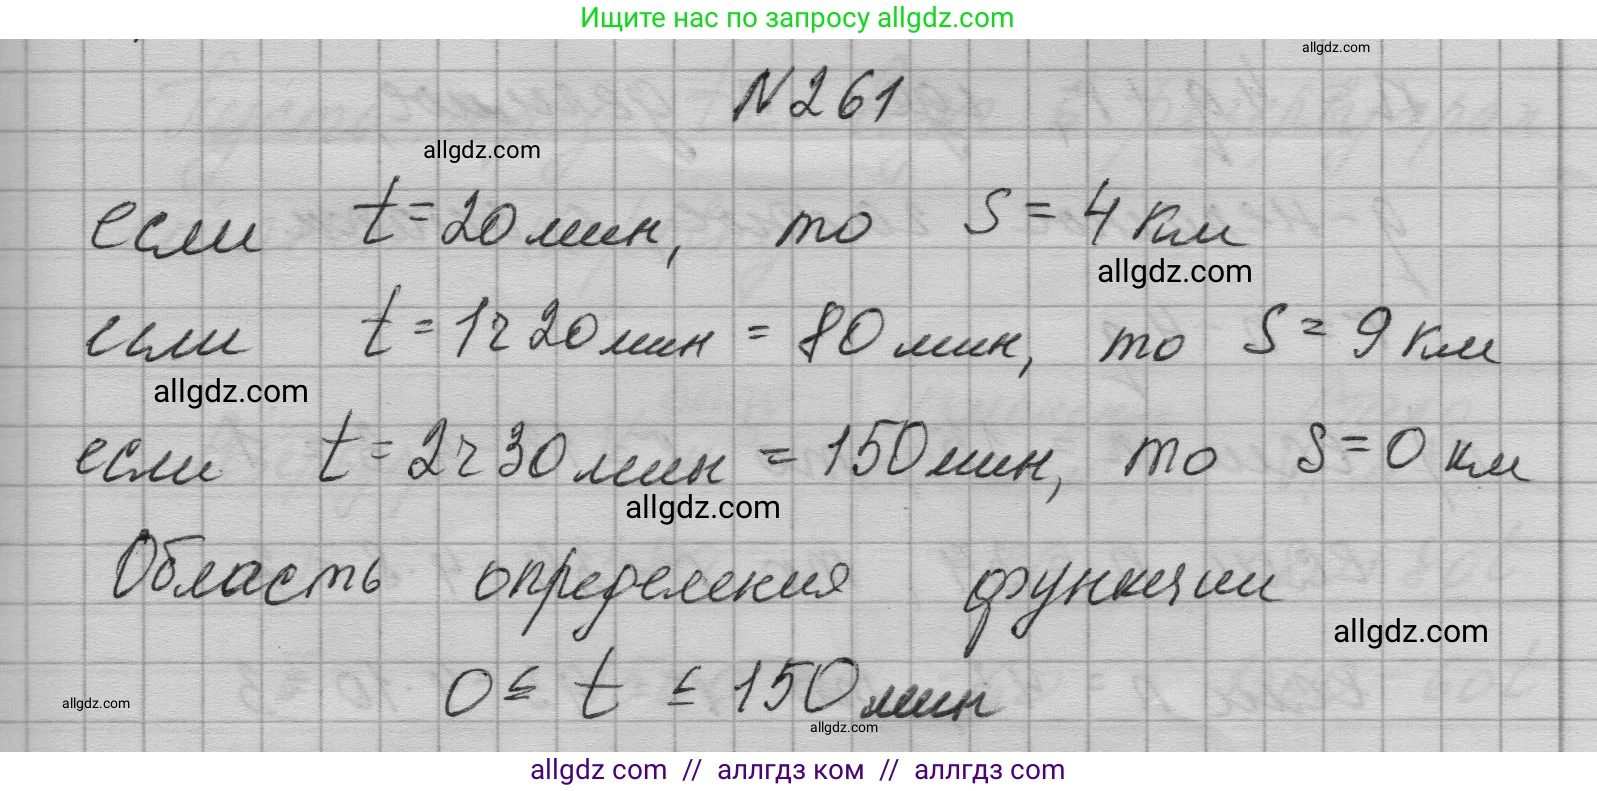 Ищите нас по запросу allgdz.com
allgdz.com
N261
allgdz.com
если t=20мин, то S=4км
allgdz.com
если t=1ч20мин=80мин, то S=9км
allgdz.com
если t=2ч30мин=150мин, то S=0км
allgdz.com
Область определения функции
allgdz.com
0≤t≤150мин
allgdz.com
allgdz.com
allgdz com // аллгдз ком // аллгдз com